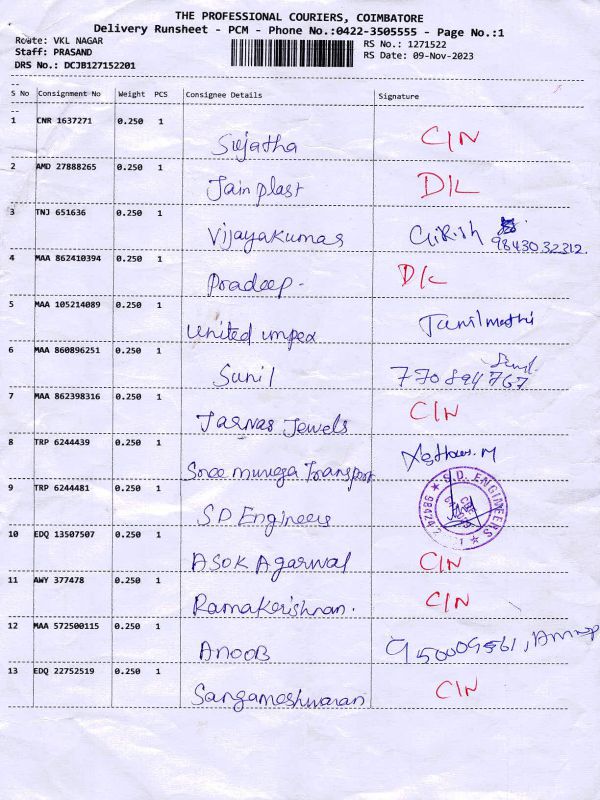 THE PROFESSIONAL COURIERS, COIMBATORE
Delivery Runsheet - PCM - Phone No.:0422-3505555 - Page No.:1
Route: VKL NAGAR
Staff: PRASAND
DRS No.: DCJB127152201
RS No.: 1271522
RS Date: 09-Nov-2023
S No Consignment No Weight PCS Consignee Details Signature
1 CNR 1637271 0.250 1 Sujatha CIN
2 AMD 27888265 0.250 1 Jain plast D/L
3 TNJ 651636 0.250 1 Vijayakumar GIRISH 9843032312.
4 MAA 862410394 0.250 1 Pradeep - D/L
5 MAA 105214089 0.250 1 United impex Tamilmathi
6 MAA 860896251 0.250 1 Sunil
7 MAA 862398316 0.250 1 Tarnas Jewels CIN
8 TRP 6244439 0.250 1 Sree muruga Transport
9 TRP 6244481 0.250 1 S.D. Engineers S.D. ENGINEERS
10 EDQ 13507507 0.250 1 Asok Agarwal CIN
11 AWY 377478 0.250 1 Ramakrishnan. CIN
12 MAA 572500115 0.250 1 ANOOB
13 EDQ 22752519 0.250 1 Sangameshwaran CIN